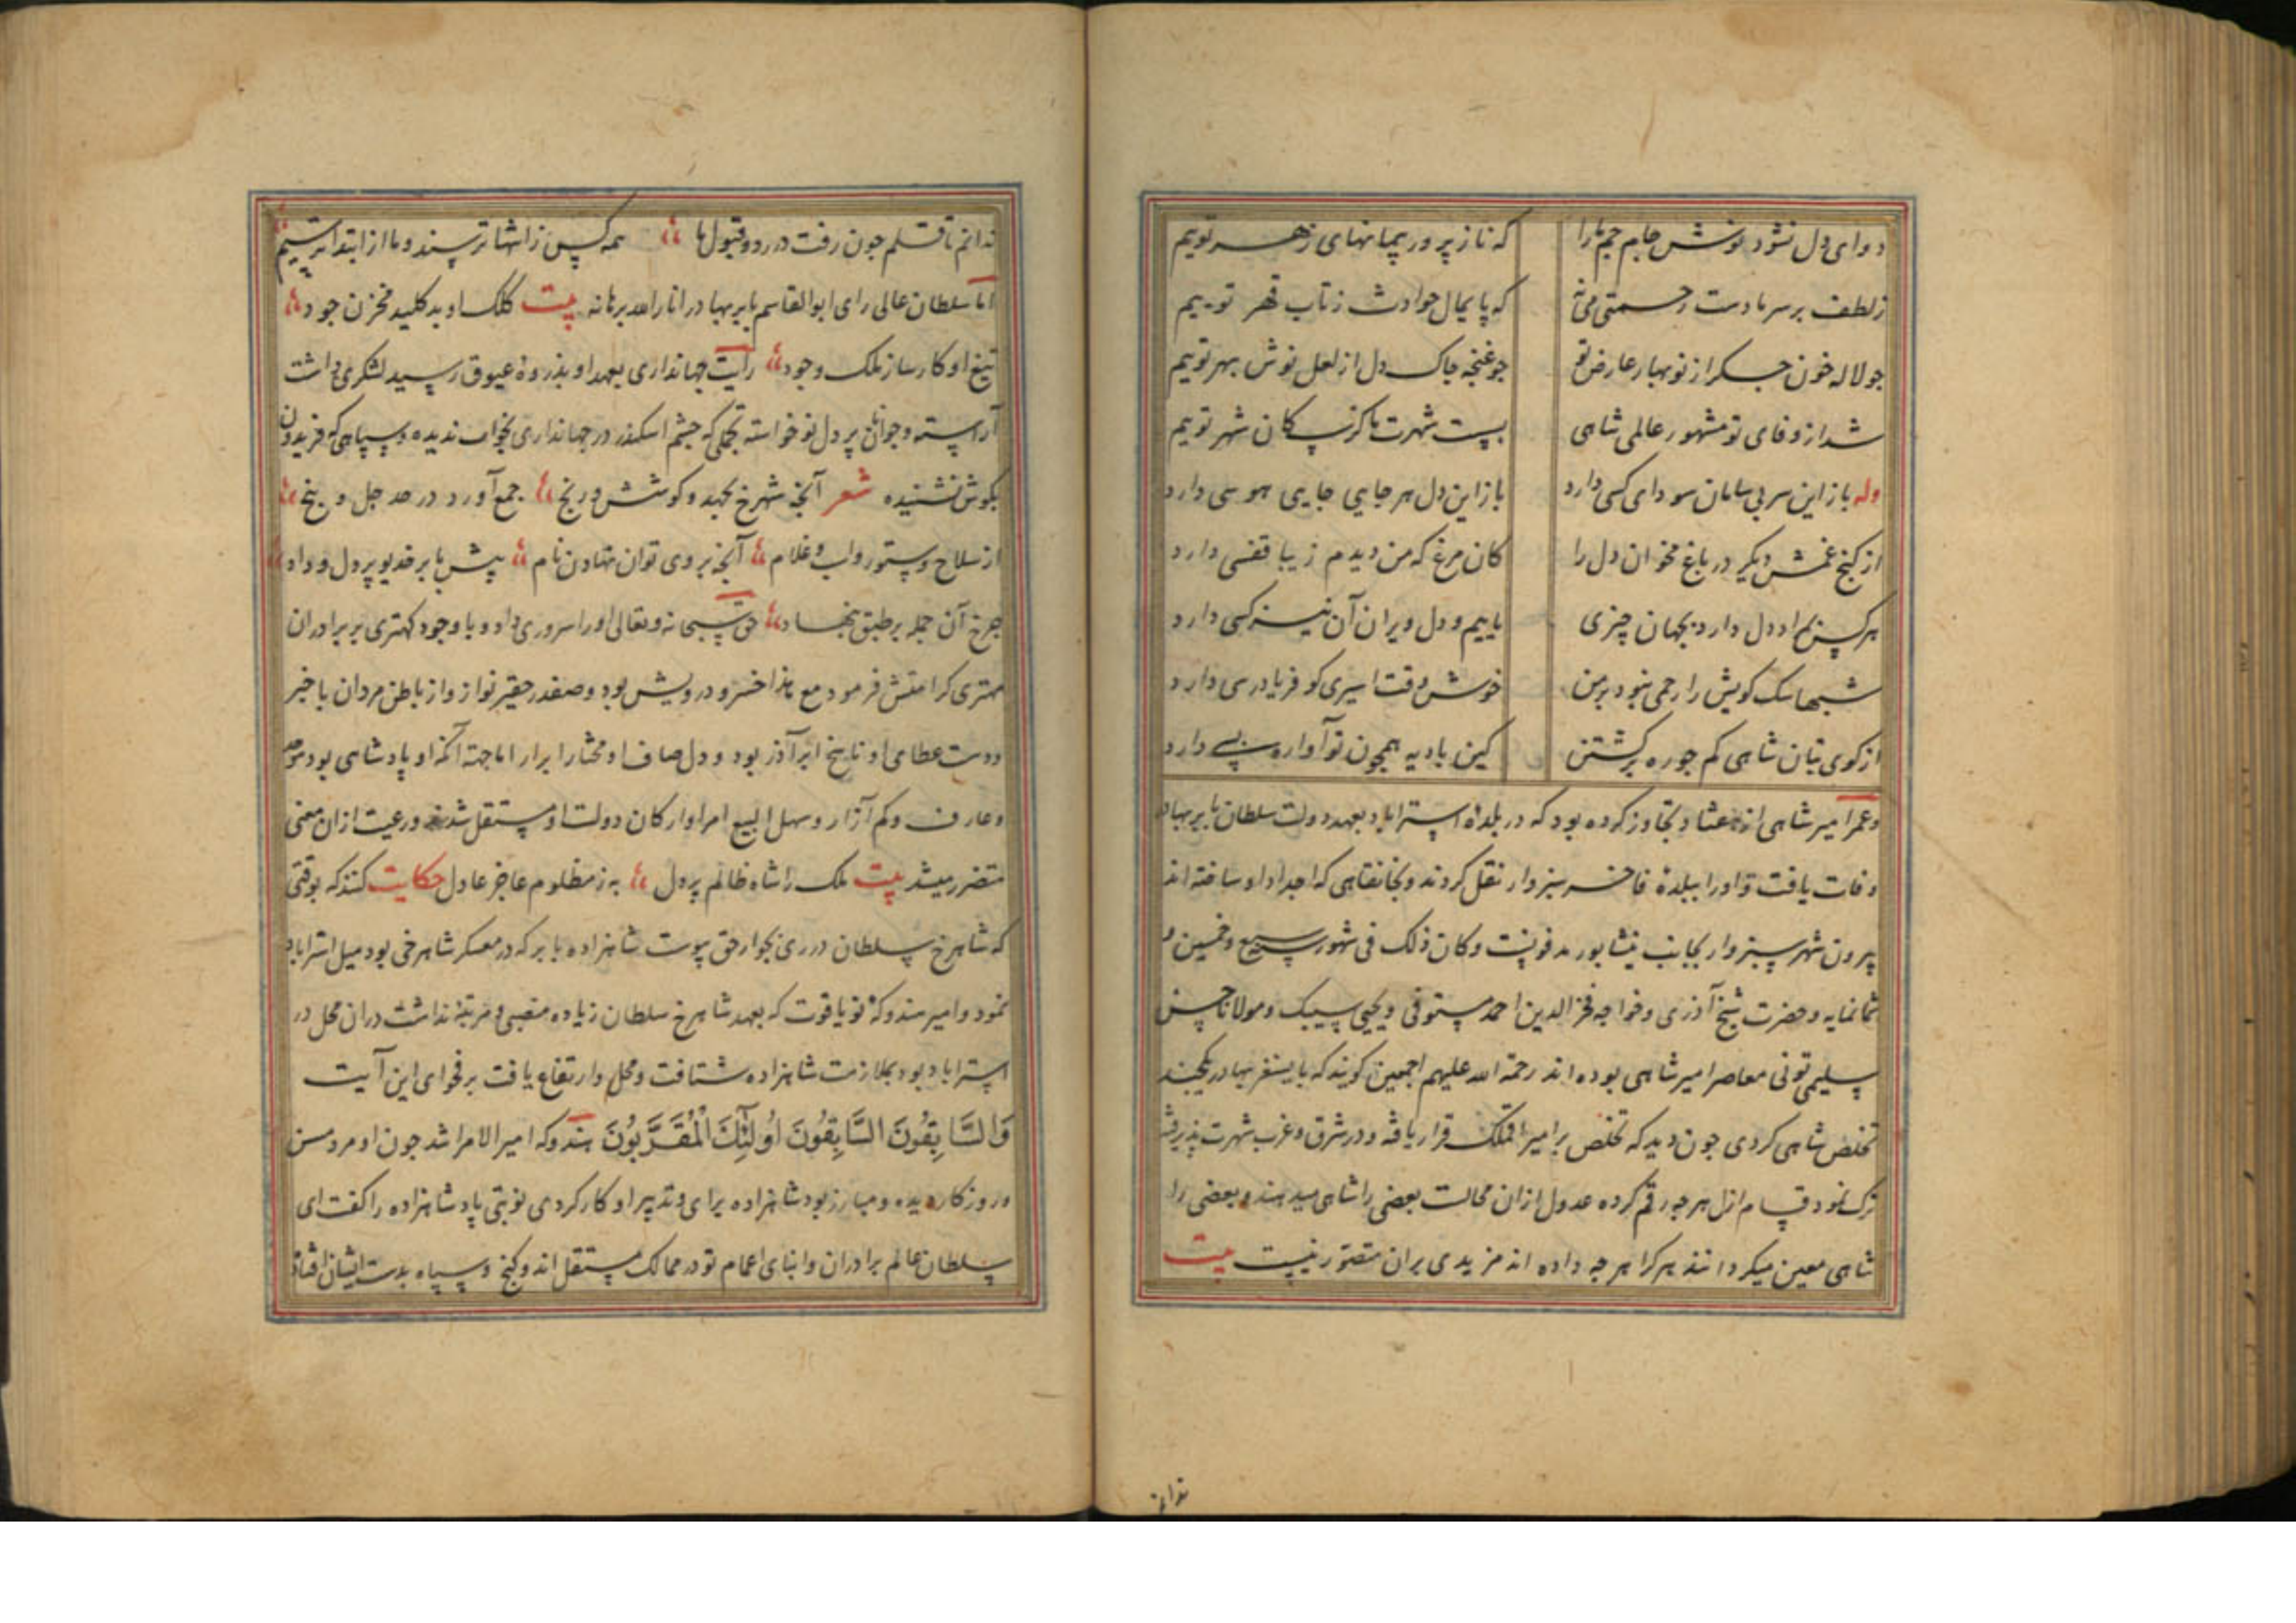 دوای دل نشود نوش جام جم ما را که ناز پرور پیمانهای زهر توییم
ز لطف بر سر ما دست رحمتی می نه که پایمال حوادث ز تاب قهر توییم
جو لاله خون جکر از نوبهار عارض تو جو غنجه جاک دل از لعل نوش بهر توییم
شد از وفای تو مشهور عالمی شاهی بپست شهرت ما کز سکان شهر توییم
وله باز این سر بی سامان سودای کسی دارد باز این دل هر جایی جایی هوسی دارد
از کنج غمش دیکر در باغ مخوان دل را کان مرغ که من دیدم زیبا قفسی دارد
هر کس بمراد دل دارد بجهان چیزی ماییم و دل ویران آن نیز کسی دارد
شبها سک کویش را رحمی نبود بر من خوش وقت اسیری کو فریادرسی دارد
از کوی بتان شاهی کم جو ره برکشتن کین بادیه همچون تو آواره بسی دارد
و عمر امیر شاهی از هفتاد تجاوز کرده بود که در بلدهٔ استراباد بعهد دولت سلطان بابر بهادر
وفات یافت و او را ببلدهٔ فاخره سبزوار نقل کردند و بخانقاهی که اجداد او ساخته اند
بیرون شهر سبزوار بجانب نیشابور مدفونست و کان ذلک فی شهور سبع و خمسین و
ثمانمایه و حضرت شیخ آذری و خواجه فخر الدین احمد مستوفی و یحیی سیبک و مولانا حسن
سلیمی تونی معاصر امیر شاهی بوده اند رحمة الله علیهم اجمعین کویند که بایسنغر بهادر یکچند
تخلص شاهی کردی جون دید که تخلص بر امیر اقملک قرار یافته و در شرق و غرب شهرت پذیرفته
ترک نمود قسام ازل هر جه رقم کرده عدول از ان محالست بعضی را شاهی میدهند و بعضی را
شاهی معین میکردانند هر کرا هر جه داده اند مزیدی بران متصور نیست بیت
ندانم
ندانم تا قلم جون رفت در رد و قبول ما همه کس ز انتها ترسند و ما از ابتدا ترسیم
اما سلطان عالی رای ابو القاسم بابر بهادر انار الله برهانه بیت کلک او بد کلید مخزن جود
تیغ او کارساز ملک وجود رایت جهانداری بعهد او بذروهٔ عیوق رسید لشکری داشت
آراسته و جوانان پر دل نو خواسته تجملی که جشم اسکندر در جهانداری بخواب ندیده و سپاهی که فریدون
بکوش نشنیده شعر آنچه شهرخ بجهد و کوشش و رنج جمع آورد در صد جل و پنج
از سلاح و ستور و اسب و غلام آنچه بر وی توان نهادن نام پیش بابر خدیو پر دل و داد
جرخ آن جمله بر طبق بنهاد حق سبحانه و تعالی او را سروری داد و با وجود کهتری بر برادران
مهتری کرامتش فرمود مع هذا خسرو درویش بود و صفدر حقیر نواز و از باطن مردان با خبر
دست عطای او ناسخ ابر آذر بود و دل صاف او مختار ابرار اما جهته آنکه او پادشاهی بود موحد
و عارف و کم آزار و سهل البیع امرا و ارکان دولت او مستقل شدند و رعیت از ان معنی
متضرر میشد بیت ملک را شاه ظالم پر دل به ز مظلوم عاجز عادل حکایت کنند که بوقتی
که شاهرخ سلطان در ری بجوار حق پیوست شاهزاده بابر که در معسکر شاهرخی بود میل استراباد
نمود و امیر هندوکه نویاقوت که بعهد شاهرخ سلطان زیاده منصبی و مرتبهٔ نداشت دران محل در
استراباد بود بملازمت شاهزاده شتافت و محل و ارتفاع یافت بر فحوای این آیت
وَالسَّابِقُونَ السَّابِقُونَ اُولٰئِكَ الْمُقَرَّبُونَ هندوکه امیر الامرا شد جون او مرد مسن
و روزکار دیده و مبارز بود شاهزاده برای و تدبیر او کار کردی نوبتی پادشاهزاده را کفت ای
سلطان عالم برادران و ابنای اعمام تو در ممالک مستقل اند و کنج و سپاه بدست ایشان افتاد